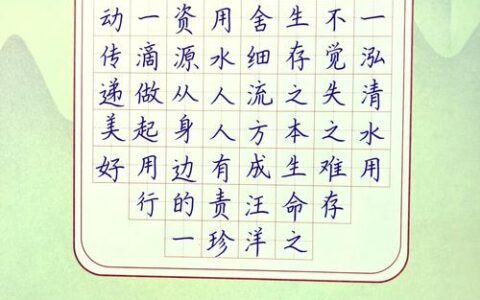 一泓清水用
不觉失之难存
生存之本生命之
舍细流方成汪洋
用水人人有责珍
资源从身边的一
一滴做起用行
动传递美好